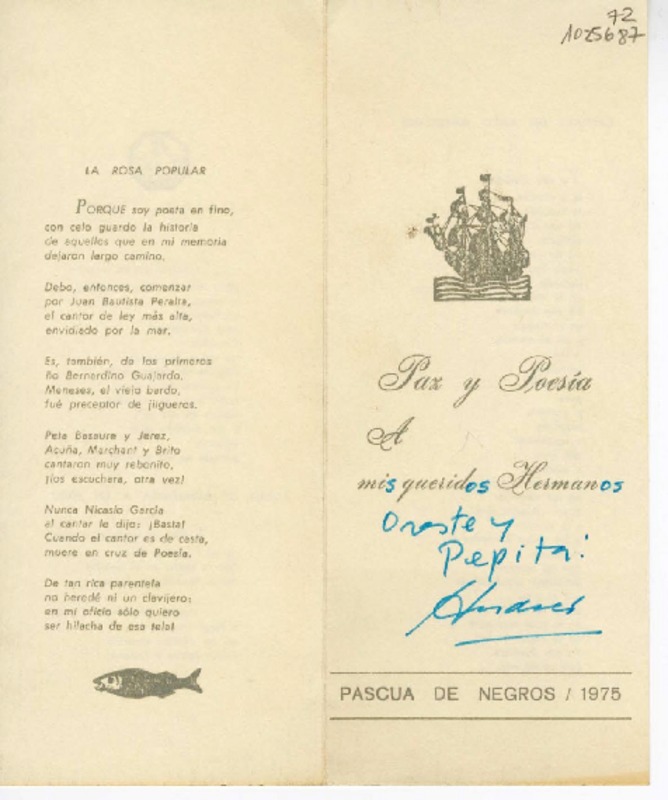 LA ROSA POPULAR
PORQUE soy poeta en fino,
con celo guardo la historia
de aquellos que en mi memoria
dejaron largo camino.
Debo, entonces, comenzar
por Juan Bautista Peralta,
el cantor de ley más alta,
envidiado por la mar.
Es, también, de los primeros
ño Bernardino Guajardo.
Meneses, el viejo bardo,
fué preceptor de jilgueros.
Peta Basaure y Jerez,
Acuña, Marchant y Brito
cantaron muy rebonito,
¡los escuchara, otra vez!
Nunca Nicasio García
al cantar le dijo: ¡Basta!
Cuando el cantor es de casta,
muere en cruz de Poesía.
De tan rica parentela
no heredé ni un clavijero:
en mi oficio sólo quiero
ser hilacha de esa tela!
72
1025687
Paz y Poesía
A
mis queridos Hermanos
Oreste y
Pepita!
Andrés
PASCUA DE NEGROS / 1975